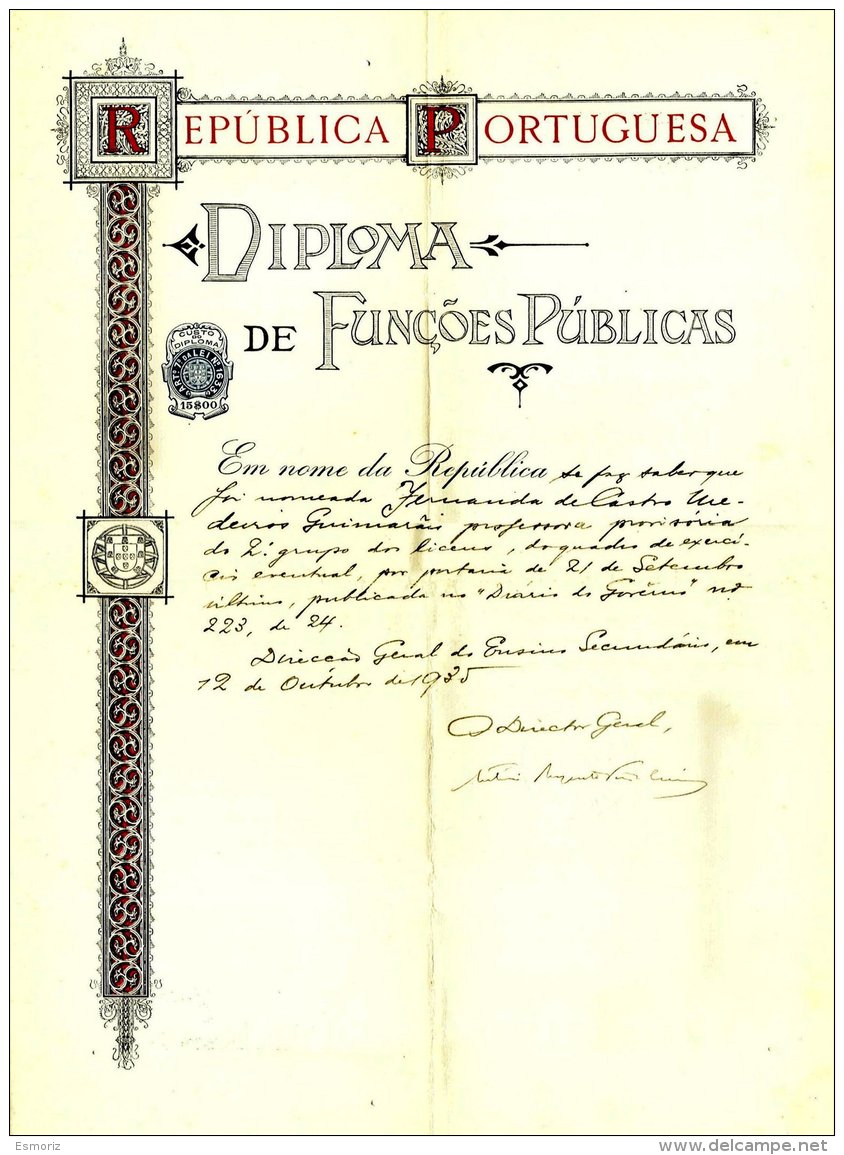 REPÚBLICA PORTUGUESA
DIPLOMA
DE FUNÇÕES PÚBLICAS
CUSTO
DIPLOMA
ART. 7º DA LEI Nº 1633
15$00
Em nome da República se faz saber que
foi nomeada Fernanda de Castro Me-
deiros Guimarãis professora provisória
do 2.º grupo dos liceus, do quadro de exercí-
cio eventual, por portaria de 21 de Setembro
último, publicada no "Diário do Govêrno" nº
223, de 24.
Direcção Geral do Ensino Secundário, em
12 de Outubro de 1935
O Director Geral,
Esmoriz
www.delcampe.net